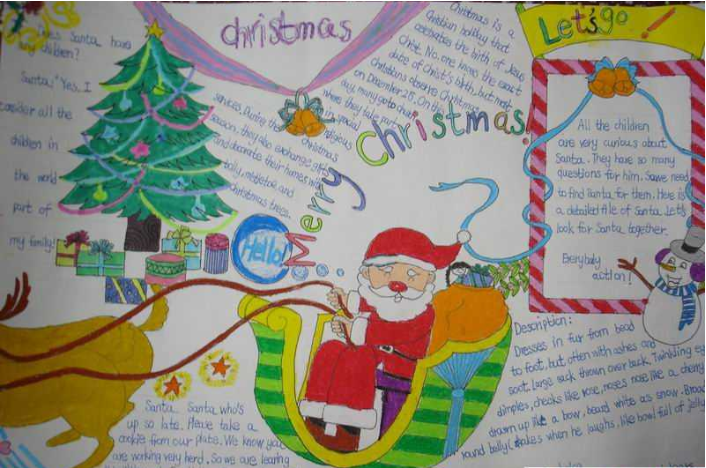 christmas
Let's go!
Does Santa have
any children?
Santa: "Yes. I
consider all the
children in
the world
part of
my family!
Christmas is a
Christian holiday that
celebrates the birth of Jesus
Christ. No one knows the exact
date of Christ's birth, but most
Christians observe Christmas
on December 25. On this
day, many go to church
where they take part
in special
religious
services. During the Christmas
season, they also exchange gifts
and decorate their homes with
holly, mistletoe, and
Christmas trees.
Merry Christmas!
Hello!
All the children
are very curious about
Santa. They have so many
questions for him. So we need
to find Santa for them. Here is
a detailed file of Santa. Let's
look for Santa together.
Everybody
action!
Description:
Dresses in fur from head
to foot, but often with ashes and
soot. Large sack thrown over back. Twinkling ey
dimples, cheeks like rose, noses like a cherry
drawn up like a bow, beard white as snow. Broad
round belly shakes when he laughs, like bowl full of jelly
Santa Santa, who's
up so late. Please take a
cookie from our plate. We know you
are working very hard. So we are leaving